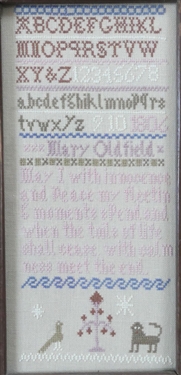 ABCDEFGHIJKL
MNOPQRSTUVW
XYZ&Z 12345678
abcdefghiklmnopqrs
tvwxyz 9 10 1904
Mary Oldfield
May I with innocence
and Peace my Meetin
g moments spend and
when the toils of life
shall cease with calm
ness meet the end.